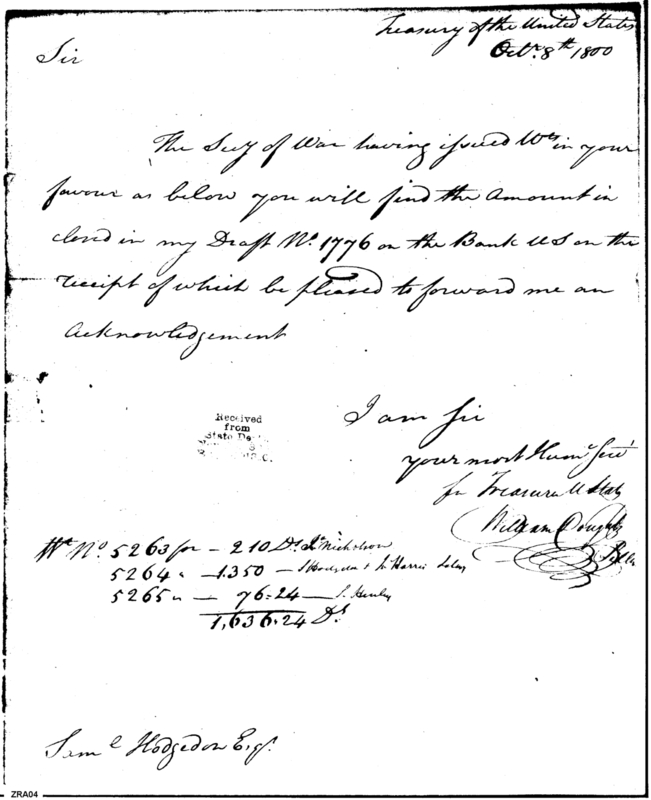 Treasury of the United States
Octr. 8th 1800
Sir
The Secy of War having issued Wts in your
favour as below you will find the Amount in
closed in my Draft No. 1776 on the Bank US on the
receipt of which be pleased to forward me an
Acknowledgement
Received
from
State De
I am Sir
your most Humle Servt
for Treasurer U States
William Doughty
Wt No. 5263 for - 210 Ds. Jn Nicholson
5264 " - 1.350 - S Hodgdon & Harris
5265 " - 76.24 - S. Henley
1,636.24 Ds
Saml Hodgedon Esqr.
ZRA04